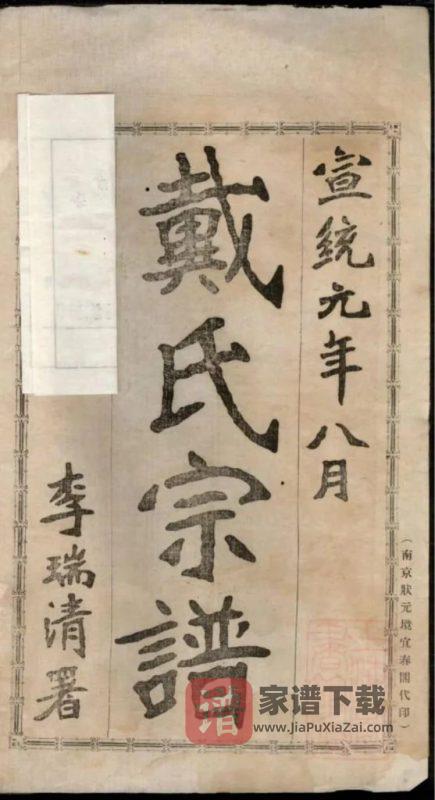 宣统元年八月
戴氏宗譜
李瑞清署
（南京狀元境宜春閣代印）
譜
家谱下载
www.JiaPuXiaZai.com